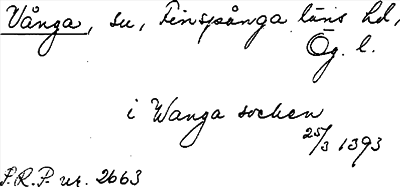 Vånga, su, Finspånga läns hd,
Ög. l.
i Wanga sochen
25/3 1393
S.R.P. nr. 2663